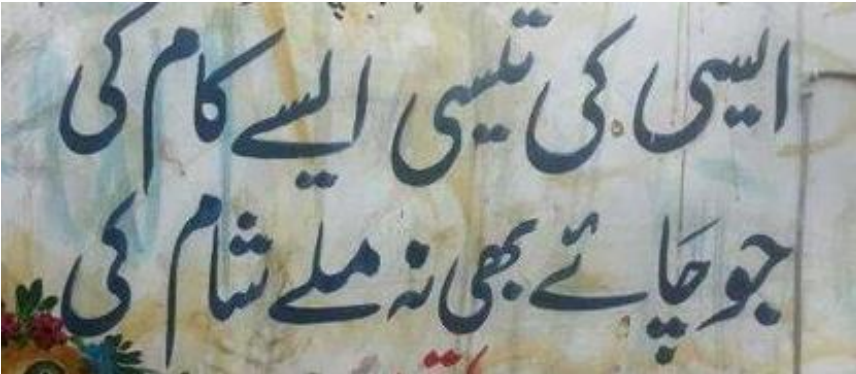 ایسی کی تیسی ایسے کام کی
جو چائے بھی نہ ملے شام کی